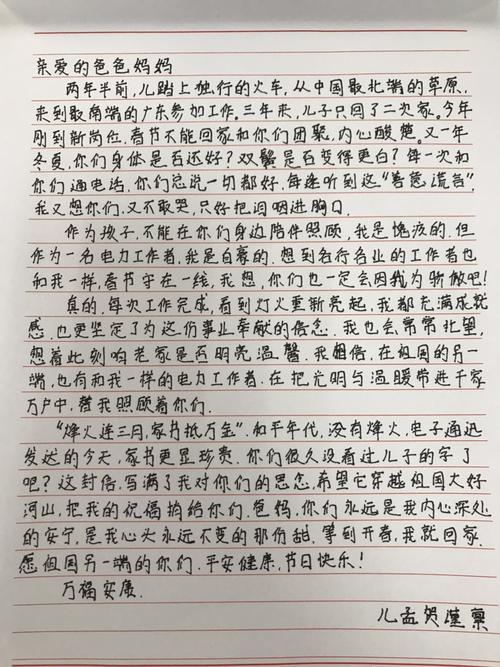 亲爱的爸爸妈妈
两年半前,儿踏上独行的火车,从中国最北端的草原,
来到最南端的广东参加工作。三年来,儿子只回了二次家。今年
刚到新岗位,春节不能回家和你们团聚,内心酸楚。又一年
冬夏,你们身体是否还好?双鬓是否变得更白?每一次和
你们通电话,你们总说一切都好,每逢听到这“善意谎言”,
我又想你们,又不敢哭,只好把泪咽进胸口.
作为孩子,不能在你们身边陪伴照顾,我是愧疚的.但
作为一名电力工作者,我是自豪的.想到各行各业的工作者也
和我一样,春节守在一线,我想,你们也一定会因我为骄傲吧!
真的,每次工作完成,看到灯火重新亮起,我都充满成就
感,也更坚定了为这份事业奉献的信念.我也会常常北望,
想着此刻响老家是否明亮温馨.我相信,在祖国的另一
端,也有和我一样的电力工作者.在把光明与温暖带进千家
万户中,替我照顾着你们.
“烽火连三月,家书抵万金”.和平年代,没有烽火,电子通迅
发达的今天,家书更显珍贵.你们很久没看过儿子的字了
吧?这封信,写满了我对你们的思念,希望它穿越祖国大好
河山,把我的祝福捎给你们.爸妈,你们永远是我内心深处
的安宁,是我心头永远不变的那份甜.等到开春,我就回家.
愿祖国另一端的你们,平安健康,节日快乐!
万福安康.
儿孟贺谨禀